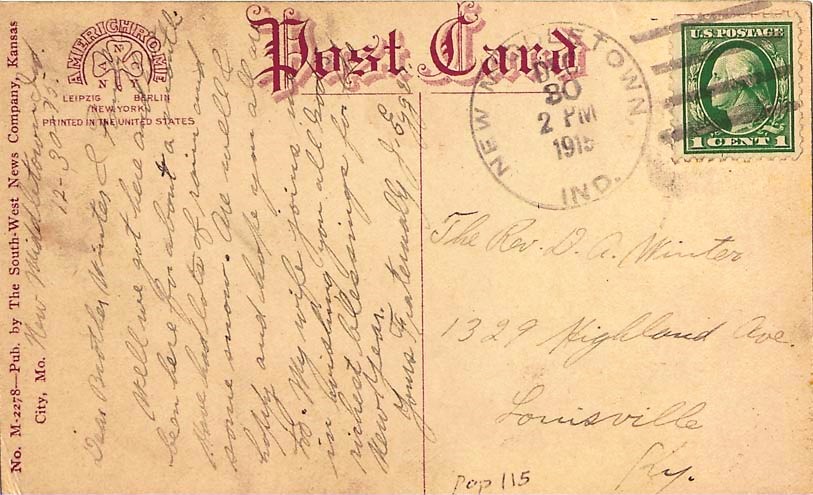 Post Card
AMERICHROME
ANNA
LEIPZIG BERLIN
NEW YORK
PRINTED IN THE UNITED STATES
No. M-2278—Pub. by The South-West News Company, Kansas
City, Mo.
New Middletown Ind.
12-30-15-
Dear Brother Winter &
Well we got here and
been here for about a month.
Have had lots of rain and
some snow. Are well &
happy and hope you all are
to. My wife joins me
in wishing you all God's
richest blessings for the
New Year.
Yours Fraternally
NEW MIDDLETOWN,
30
2 PM
1915
IND.
U.S. POSTAGE
1 CENT 1
The Rev. D. A. Winter
1329 Highland Ave.
Louisville
Ky.
Pop 115